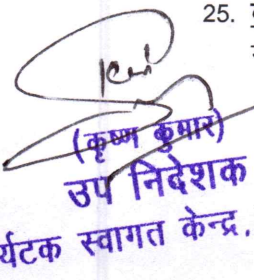 25.
(कृष्ण कुमार)
उप निदेशक
र्यटक स्वागत केन्द्र.